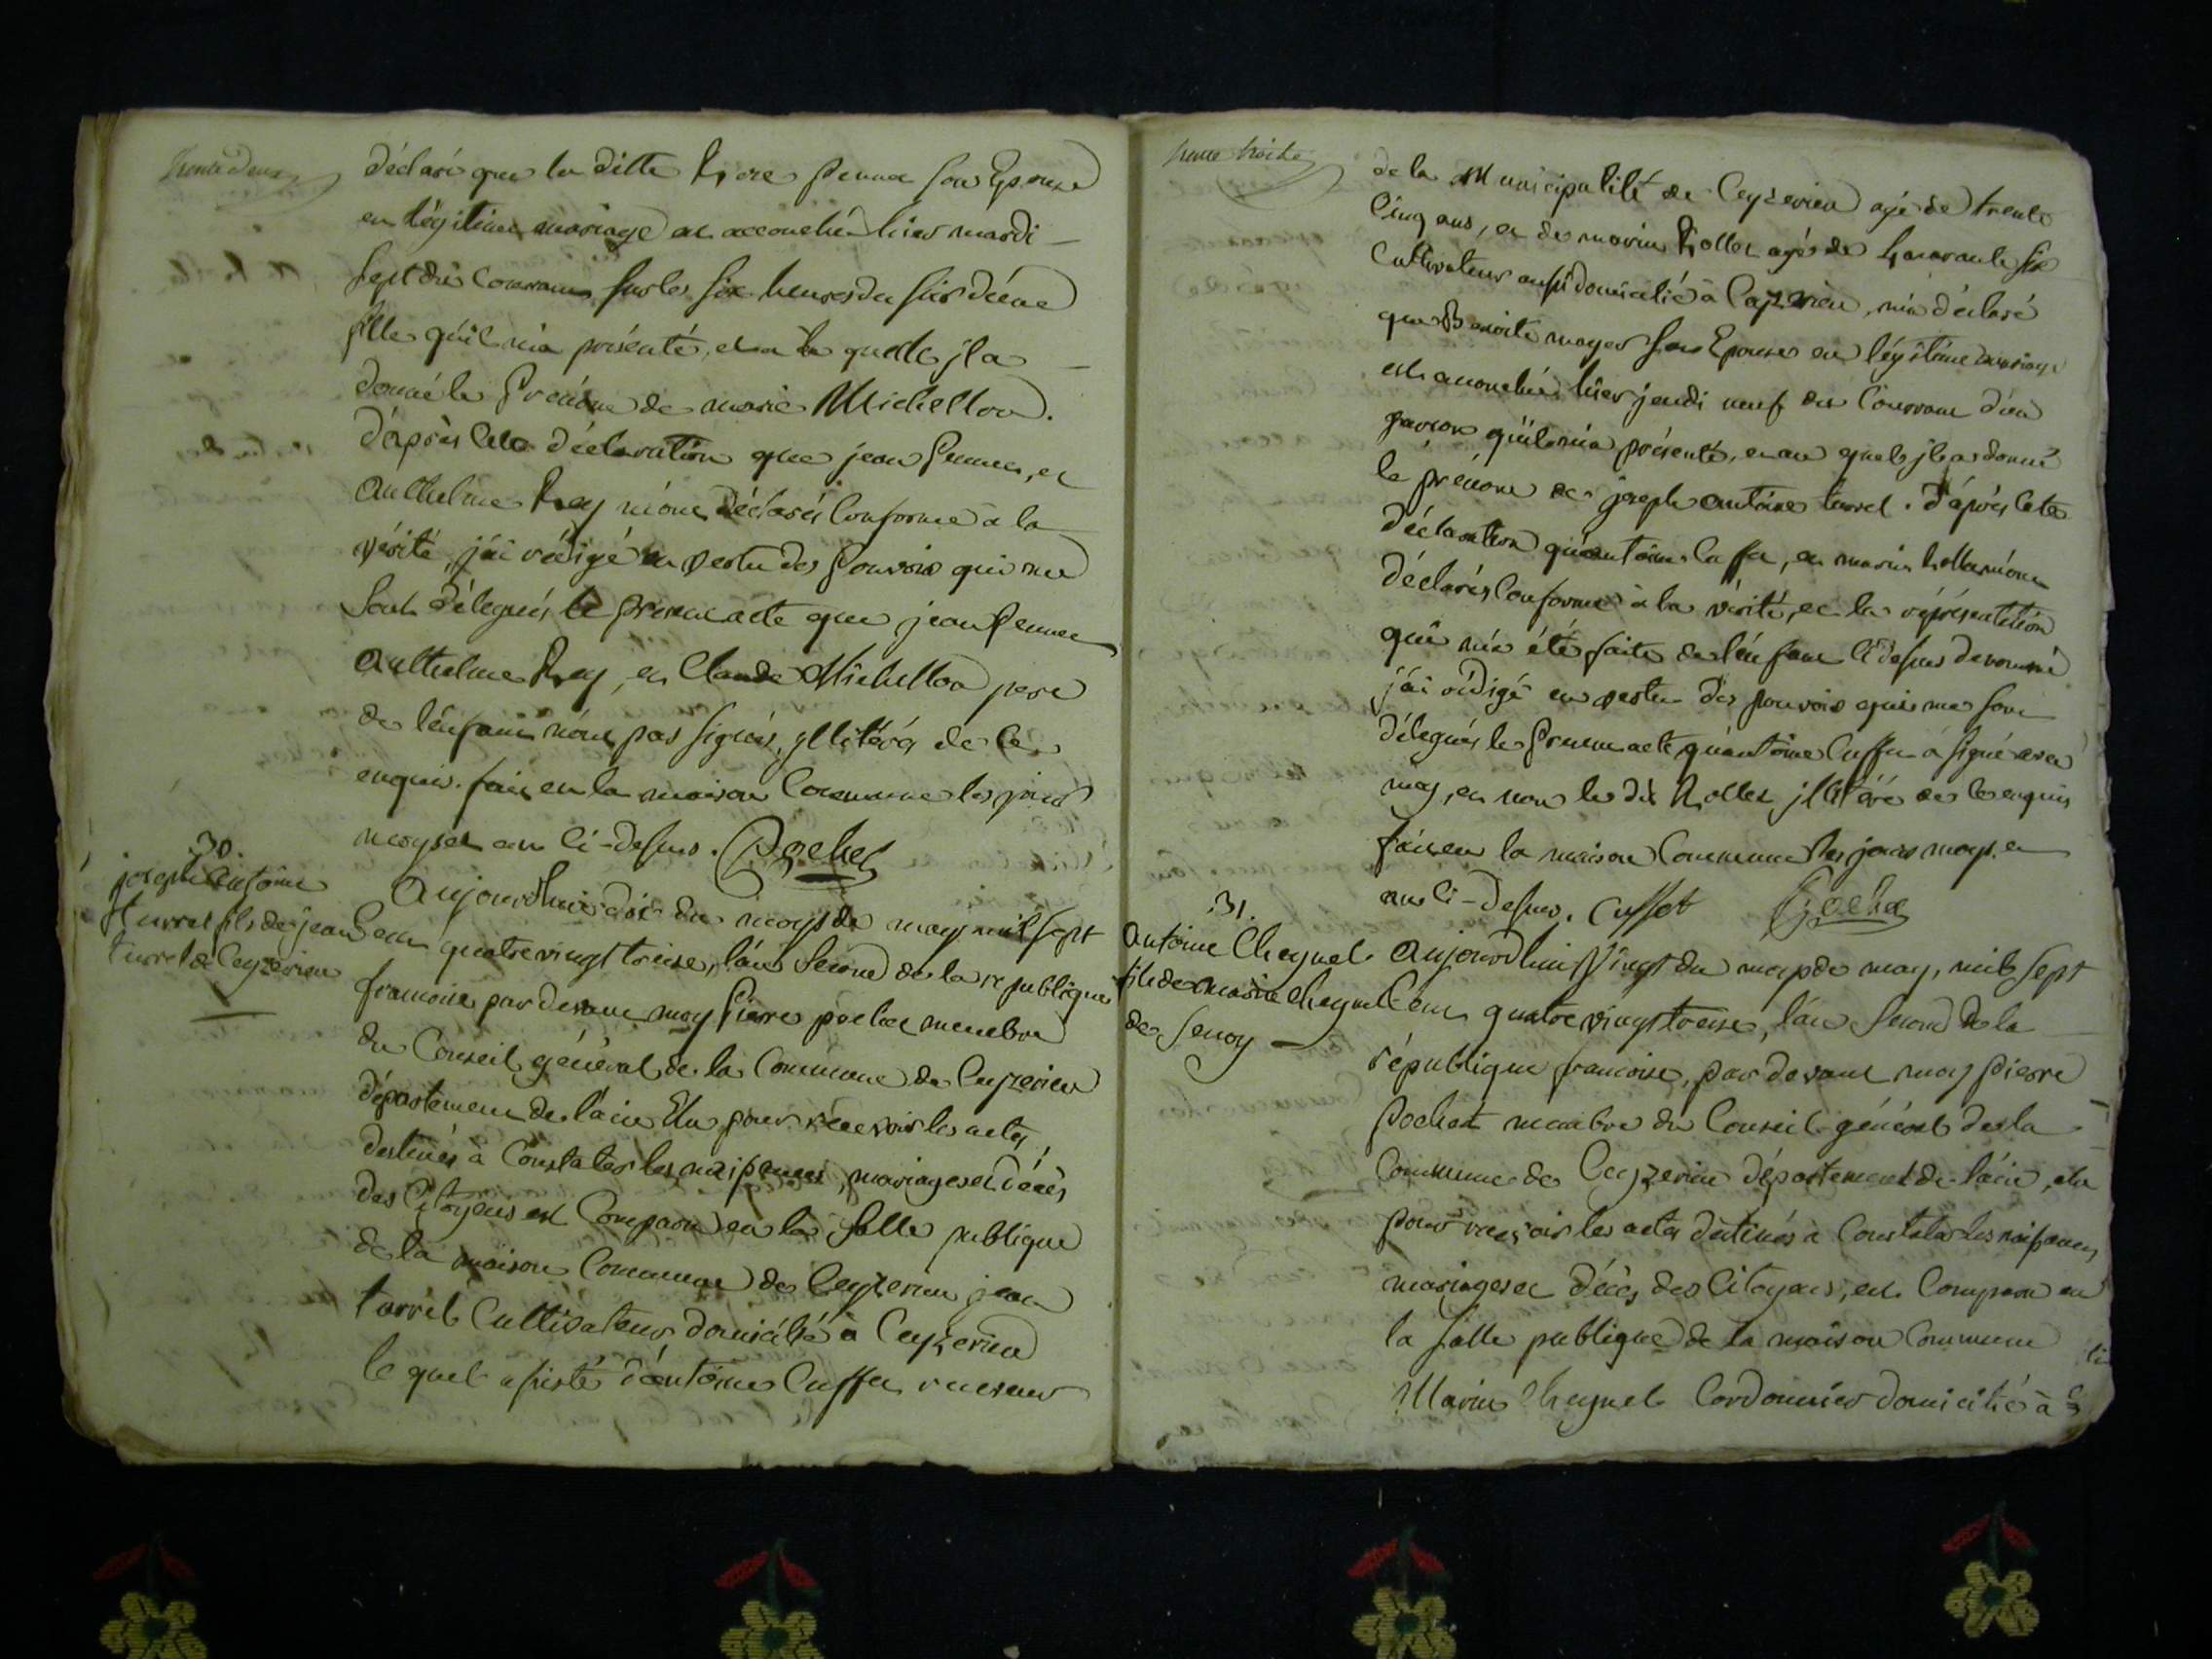 trente deux
déclaré que la ditte Pierre penna son Epouse
en légitime mariage est accouchée hier mardi
sept du Courrant sur les six heures du soir d'éune
fille qu'il m'a présenté, et a la quelle jl a
donné le Prénome de marie Michellon.
d'après cete déclaration que jean pennas, et
Anthelme Rey m'ont déclarés conforme à la
vérité, j'ai rédigé en vertu des pouvoir qui me
sont délegués le present acte que jean pennas
Anthelme Rey, et Claude Michellon pere
de l'énfant n'ont pas signés, yllitérés de ce
enquis. fait en la maison Commune les jour
moys et an ci-dessus. Pochet
30.
joseph antoine
turrel fils de jean
turrel de Ceyzerieu
Aujourdhui dix du moys de may mil sept
Cent quatre vingt treise, l'an second de la republique
francoise par devant moy Pierre pochet membre
du Conseil général de la Commune de Ceyzerieu
département de l'ain Elu pour recevoir les actes
destinés à Constater les naissances, mariages et décès
des Citoyens est Comparu en la salle publique
de la maison Commune de Ceyzerieu jean
turrel Cultivateur domicilié à Ceyzerieu
le quel assisté d'antoine Cuffet receveur
trente troisie
de la Municipalité de Ceyzerieu agé de trente
Cinq ans, et de marin Rollet agé de quarante six
Cultivateur aussi domicilié à Ceyzerieu, m'a déclaré
que Benoite moyer son Epouse en légitime mariage
est accouchée hier jeudi neuf du Courrant d'un
garcon qu'il m'a présenté, et au quel jl a donné
le prénome de joseph antoine turrel. d'aprés cete
déclaration qu'antoine Cuffet, et marin Rollet m'ont
déclarés conforme à la vérité, et la réprésentation
qui m'a été faite de l'énfant ci dessus denommé
j'ai rédigé en vertu des pouvoir qui me sont
délegués le present acte qu'antoine Cuffet a signé avec
moy, et non le dit Rollet jllitéré de ce enquis
fait en la maison Commune les jours moys et
an ci-dessus. Cuffet Pochet
31.
Antoine Cheynel
fils de marin cheynel
de Senoy
Aujourdhui Vingt du moys de may, mil sept
Cent quatre vingt treise, l'an second de la
république francoise, par devant moy pierre
Pochet membre du Conseil général de la
Commune de Ceyzerieu département de l'ain, elu
pour recevoir les actes destinés à Constater les naissances
mariages et décès des Citoyens, est Comparu en
la salle publique de la maison Commune
Marin Cheynel Cordonnier domicilié à